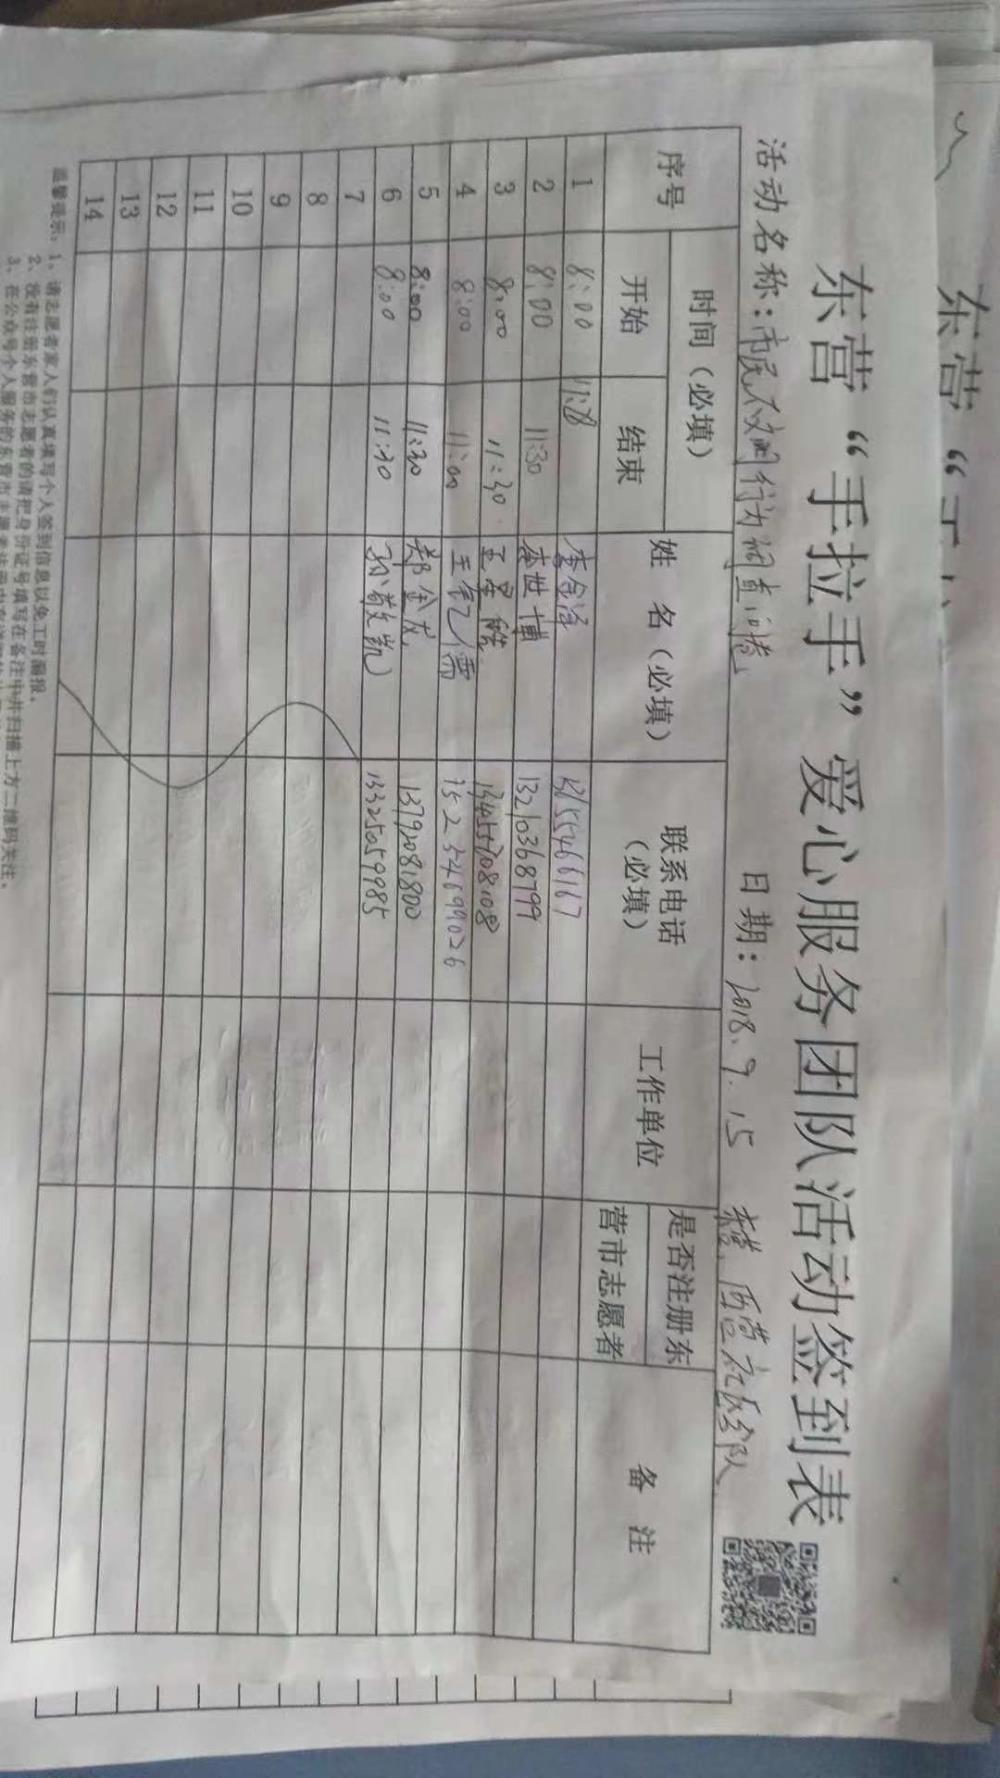 东营“手拉手”爱心服务团队活动签到表
活动名称：市民不文明行为调查问卷 日期：2018.9.15
序号 时间（必填） 姓 名（必填） 联系电话（必填） 工作单位 是否注册东营市志愿者 备 注
开始 结束
1 8:00
2 8:00 11:30 李世博 13210368799
3 8:00 11:30
4 8:00 11:00
5 8:00 11:30 郑金龙 13792081800
6 8:00 11:30 孙敬凯 13325059985
7
8
9
10
11
12
13
14
温馨提示：1、请志愿者家人们认真填写个人签到信息以免工时漏报。
2、没有注册东营市志愿者的请把身份证号填写在备注中并扫描上方二维码关注。
东营“手